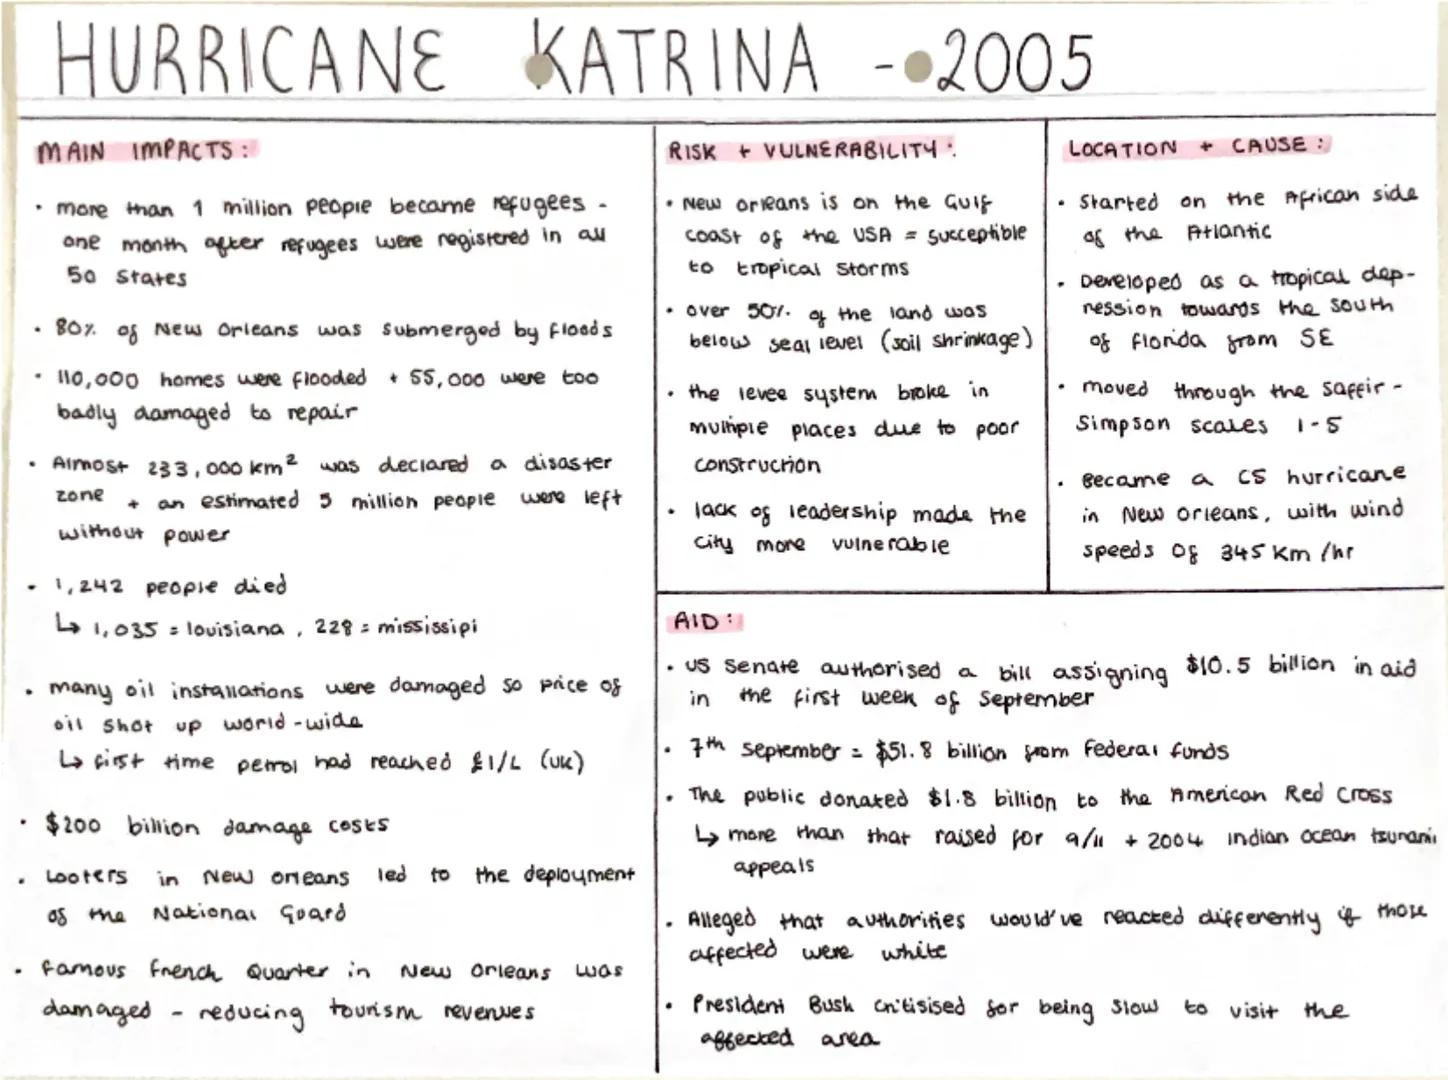 HURRICANE KATRINA - 2005
MAIN IMPACTS:
• more than 1 million people became refugees -
one month after refugees were registered in all
50 States
• 80% of New Orleans was submerged by floods
• 110,000 homes were flooded + 55,000 were too
badly damaged to repair
• Almost 233,000 km² was declared a disaster
zone + an estimated 5 million people were left
without power
• 1,242 people died
↳ 1,035 = louisiana, 228 = mississipi
• many oil installations were damaged so price of
oil shot up world-wide
↳ first time petrol had reached £1/L (UK)
• $200 billion damage costs
• Looters in New Orleans led to the deployment
of the National Guard
• famous French Quarter in New Orleans was
damaged - reducing tourism revenues
RISK + VULNERABILITY:
• New Orleans is on the Gulf
coast of the USA = succeptible
to tropical storms
• over 50% of the land was
below seal level (soil shrinkage)
• the levee system broke in
multiple places due to poor
construction
• lack of leadership made the
city more vulnerable
LOCATION + CAUSE:
• Started on the African side
of the Atlantic
• Developed as a tropical dep-
ression towards the south
of florida from SE
• moved through the saffir-
Simpson scales 1-5
• Became a C5 hurricane
in New Orleans, with wind
speeds of 345 Km/hr
AID:
• US Senate authorised a bill assigning $10.5 billion in aid
in the first week of September
• 7th September = $51.8 billion from Federal funds
• The public donated $1.8 billion to the American Red Cross
↳ more than that raised for 9/11 + 2004 indian ocean tsunami
appeals
• Alleged that authorities would've reacted differently if those
affected were white
• President Bush critisised for being slow to visit the
affected area